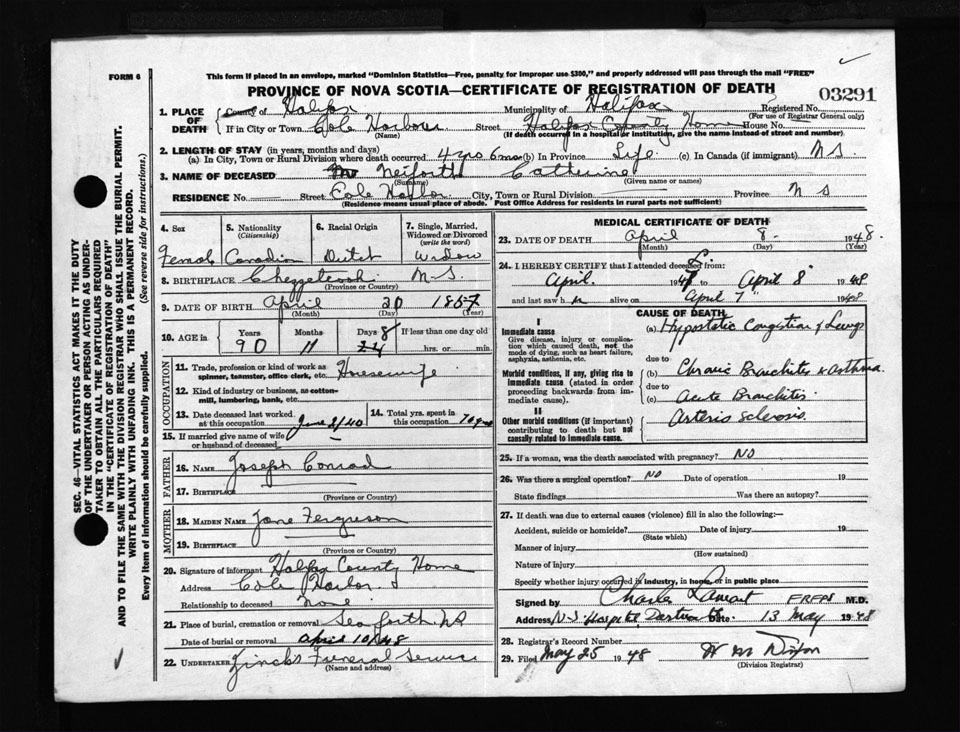 FORM 6
This form if placed in an envelope, marked "Dominion Statistics—Free, penalty for improper use $300," and properly addressed will pass through the mail "FREE"
PROVINCE OF NOVA SCOTIA—CERTIFICATE OF REGISTRATION OF DEATH
03291
1. PLACE OF DEATH
County of Halifax Municipality of Halifax Registered No.
(For use of Registrar General only)
If in City or Town Cole Harbour Street Halifax County Home House No.
(Name) (If death occurred in a hospital or institution, give the name instead of street and number)
2. LENGTH OF STAY (in years, months and days)
(a) In City, Town or Rural Division where death occurred 4 yrs 6 mos (b) In Province Life (c) In Canada (if immigrant) N S
3. NAME OF DECEASED Neiforth Catherine
(Surname) (Given name or names)
RESIDENCE No. Street Cole Harbor City, Town or Rural Division Province N S
(Residence means usual place of abode. Post Office Address for residents in rural parts not sufficient)
4. Sex
Female
5. Nationality
(Citizenship)
Canadian
6. Racial Origin
Dutch
7. Single, Married, Widowed or Divorced
(write the word)
Widow
8. BIRTHPLACE Chezzetcook N.S.
(Province or Country)
9. DATE OF BIRTH April 30 1857
(Month) (Day) (Year)
10. AGE in
Years Months Days If less than one day old
90 11 8 hrs. or min.
OCCUPATION
11. Trade, profession or kind of work as spinner, teamster, office clerk, etc. Housewife
12. Kind of industry or business, as cotton-mill, lumbering, bank, etc.
13. Date deceased last worked at this occupation June 21/40
14. Total yrs. spent in this occupation 70 yrs
15. If married give name of wife or husband of deceased
FATHER
16. NAME Joseph Conrad
17. BIRTHPLACE
(Province or Country)
MOTHER
18. MAIDEN NAME Jane Ferguson
19. BIRTHPLACE
(Province or Country)
20. Signature of informant Halifax County Home
Address Cole Harbor
Relationship to deceased None
21. Place of burial, cremation or removal Seaforth NS
Date of burial or removal April 10/48
22. UNDERTAKER Zinck's Funeral Service
(Name and address)
MEDICAL CERTIFICATE OF DEATH
23. DATE OF DEATH April 8 1948.
(Month) (Day) (Year)
24. I HEREBY CERTIFY that I attended deceased from:
April 1947 to April 8 1948
and last saw h alive on April 7 1948
CAUSE OF DEATH
I
Immediate cause
Give disease, injury or complication which caused death, not the mode of dying, such as heart failure, asphyxia, asthenia, etc.
(a) Hypostatic Congestion of Lungs
due to
Morbid conditions, if any, giving rise to immediate cause (stated in order proceeding backwards from immediate cause).
(b) Chronic Bronchitis & Asthma
due to
(c) Acute Bronchitis
II
Other morbid conditions (if important) contributing to death but not causally related to immediate cause.
Arterio sclerosis
25. If a woman, was the death associated with pregnancy? NO
26. Was there a surgical operation? NO Date of operation 19
State findings Was there an autopsy?
27. If death was due to external causes (violence) fill in also the following:—
Accident, suicide or homicide? Date of injury 19
(State which)
Manner of injury
(How sustained)
Nature of injury
Specify whether injury occurred in industry, in home, or in public place
Signed by Charles Lamont M.D.
Address N.S. Hospital, Dartmouth Date 13 May 1948
28. Registrar's Record Number
29. Filed May 25 1948 W M Dixon
(Division Registrar)
SEC. 46—VITAL STATISTICS ACT MAKES IT THE DUTY
OF THE UNDERTAKER OR PERSON ACTING AS UNDER-
TAKER TO OBTAIN ALL THE PARTICULARS REQUIRED
IN THE "CERTIFICATE OF REGISTRATION OF DEATH"
AND TO FILE THE SAME WITH THE DIVISION REGISTRAR WHO SHALL ISSUE THE BURIAL PERMIT.
WRITE PLAINLY WITH UNFADING INK. THIS IS A PERMANENT RECORD.
Every item of information should be carefully supplied. (See reverse side for instructions.)